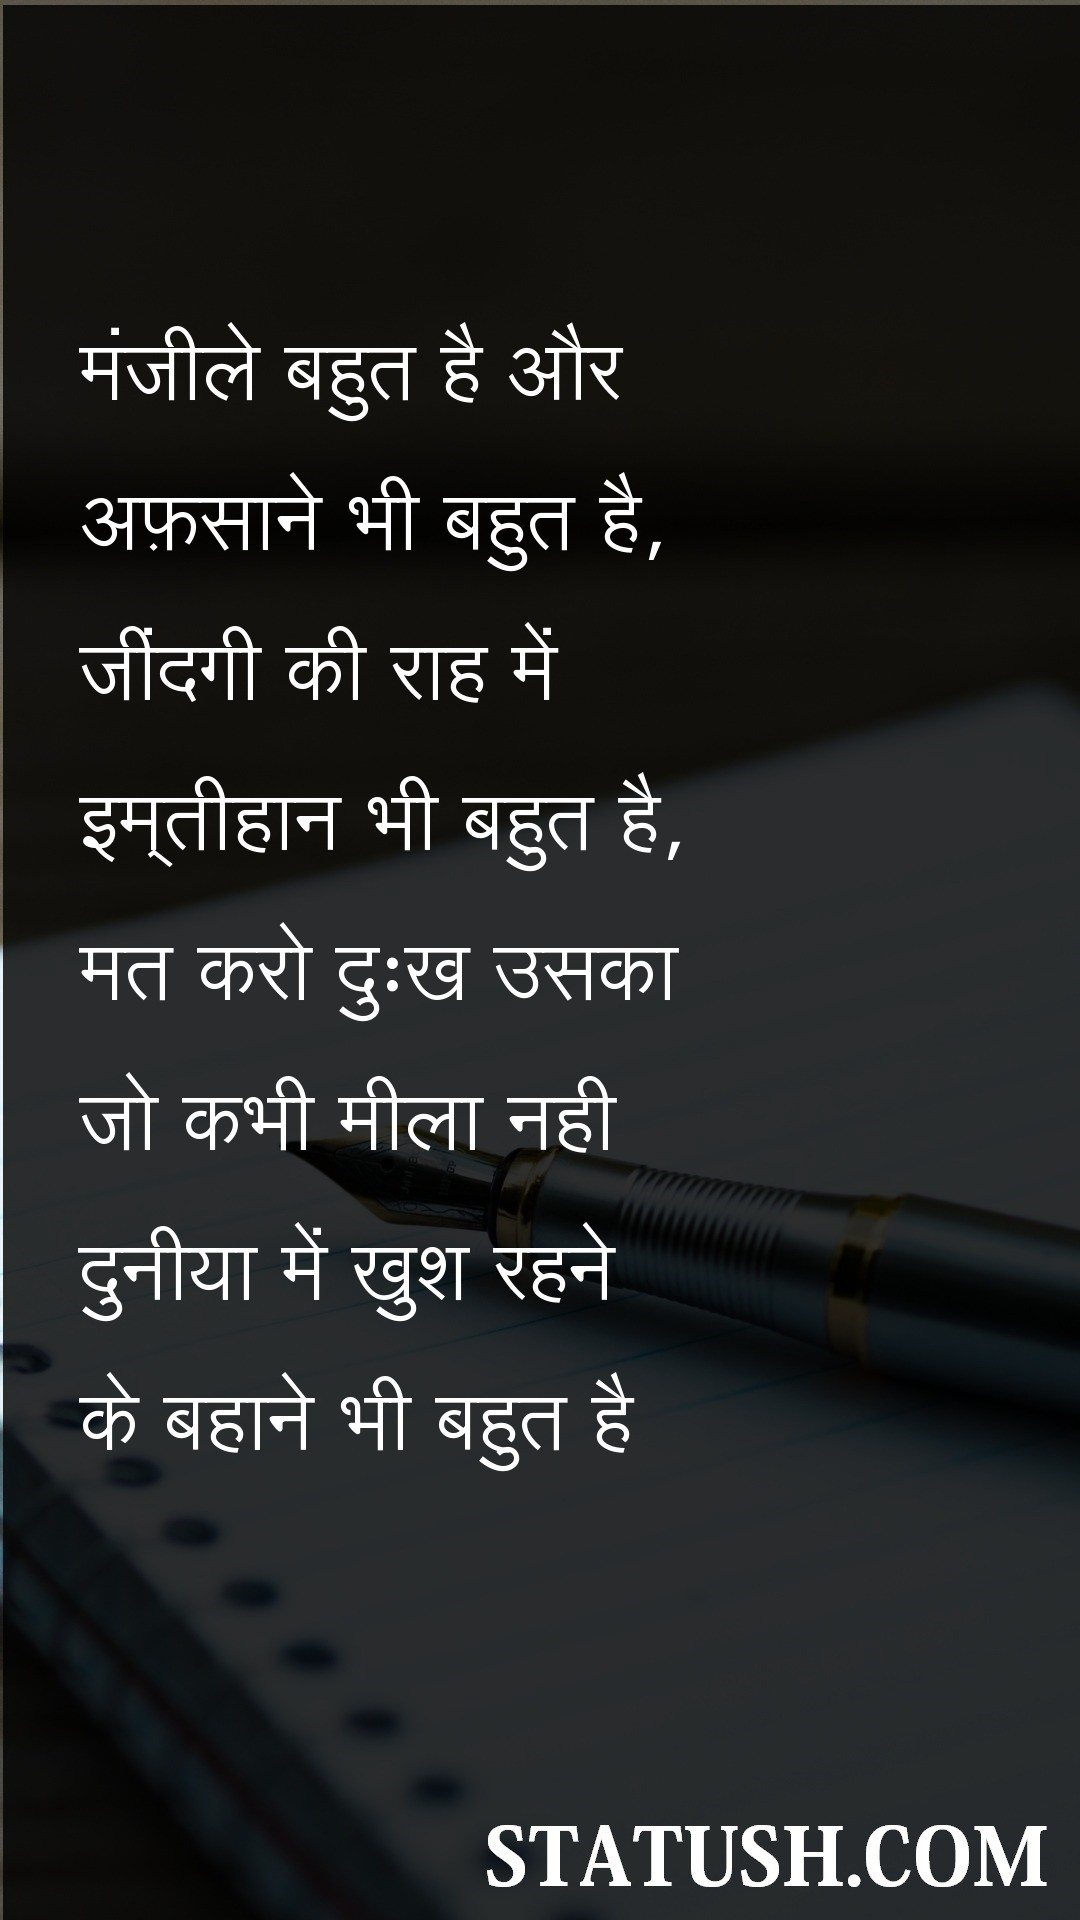 मंजीले बहुत है और
अफ़साने भी बहुत है,
जींदगी की राह में
इम्‌तीहान भी बहुत है,
मत करो दुःख उसका
जो कभी मीला नही
दुनीया में खुश रहने
के बहाने भी बहुत है
STATUSH.COM